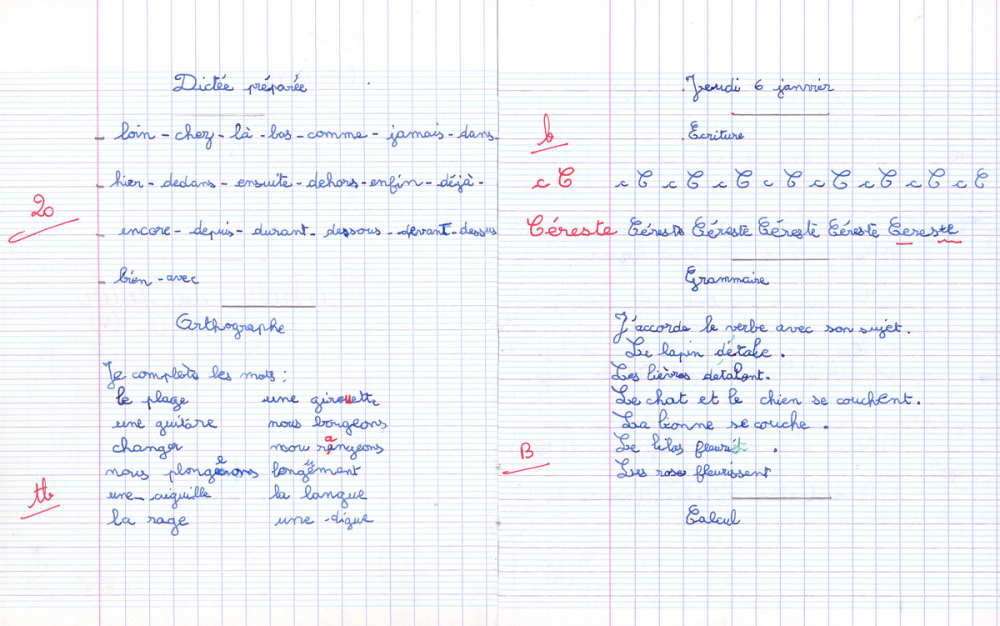 Dictée préparée
- loin - chez - là - bas - comme - jamais - dans -
hier - dedans - ensuite - dehors - enfin - déjà -
20
encore - depuis - durant - dessous - devant - dessus
- bien - avec
Orthographe
Je complète les mots :
le plage une girouette
une guitare nous bougeons
changer nous rangeons
nous plongerons longement
une aiguille la langue
tb
la rage une digue
Jeudi 6 janvier
b
Écriture
c C c C c C c C c C c C c C c C c C
Céreste Céreste Céreste Céreste Céreste Cereste
Grammaire
J'accorde le verbe avec son sujet.
Le lapin détale.
Les lièvres detalent.
Le chat et le chien se couchent.
La lionne se couche.
B
Le lilas fleurit.
Les roses fleurissent
Calcul